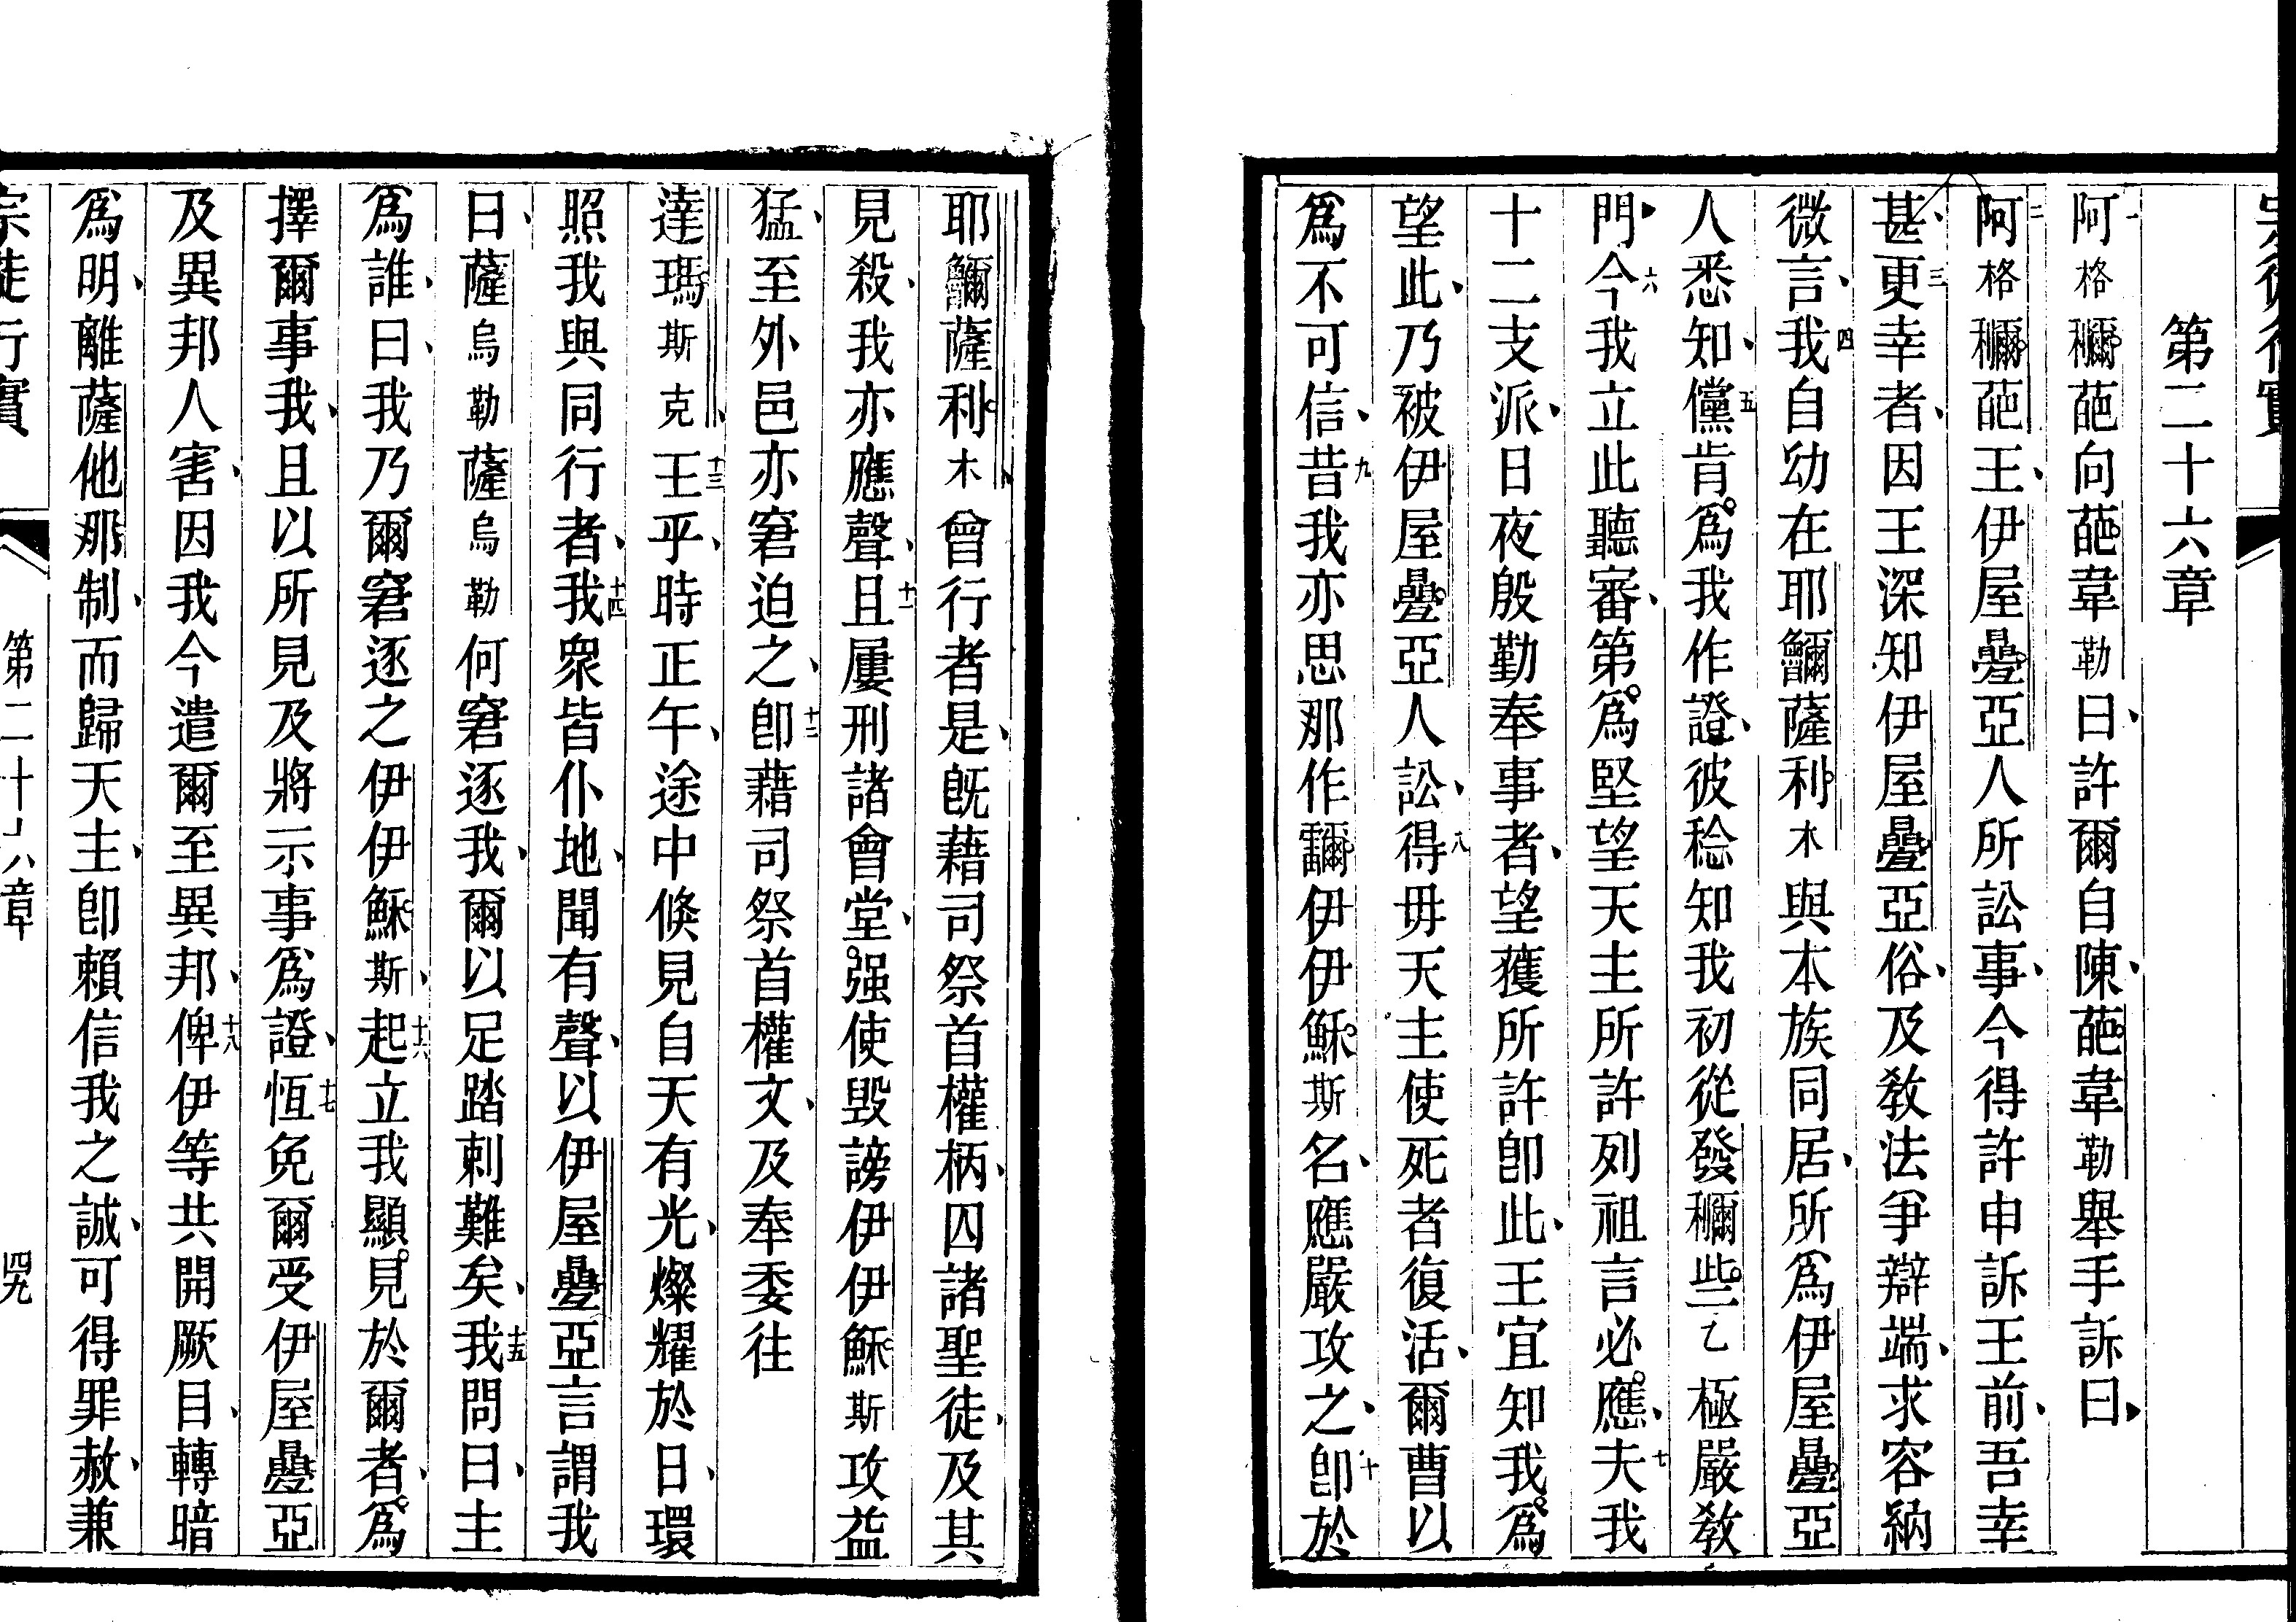 宗徒行實
第二十六章
一阿格穪葩向葩韋勒曰許爾自陳葩韋勒舉手訴曰
二阿格穪葩王伊屋疊亞人所訟事今得許申訴王前吾幸
甚三更幸者因王深知伊屋疊亞俗及敎法爭辯端求容納
微言四我自幼在耶薩利木與本族同居所爲伊屋疊亞
人悉知五儻肯爲我作證彼稔知我初從發穪些乙極嚴敎
門六今我立此聽審第爲堅望天主所許列祖言必應七夫我
十二支派日夜殷勤奉事者望獲所許卽此王宜知我爲
望此乃被伊屋疊亞人訟八得毋天主使死者復活爾曹以
爲不可信九昔我亦思那作伊伊穌斯名應嚴攻之十卽於
耶薩利木曾行者是旣藉司祭首權柄囚諸聖徒及其
見殺我亦應聲十一且屢刑諸會堂强使毀謗伊伊穌斯攻益
猛至外邑亦窘迫之十二卽藉司祭首權文及奉委往
達瑪斯克十三王乎時正午途中倏見自天有光燦耀於日環
照我與同行者十四我衆皆仆地聞有聲以伊屋疊亞言謂我
曰薩烏勒薩烏勒何窘逐我爾以足踏刺難矣十五我問曰主
爲誰曰我乃爾窘逐之伊伊穌斯十六起立我顯見於爾者爲
擇爾事我且以所見及將示事爲證十七恆免爾受伊屋疊亞
及異邦人害因我今遣爾至異邦十八俾伊等共開厥目轉暗
爲明離薩他那制而歸天主卽賴信我之誠可得罪赦兼
宗徒行實 第二十六章 四九